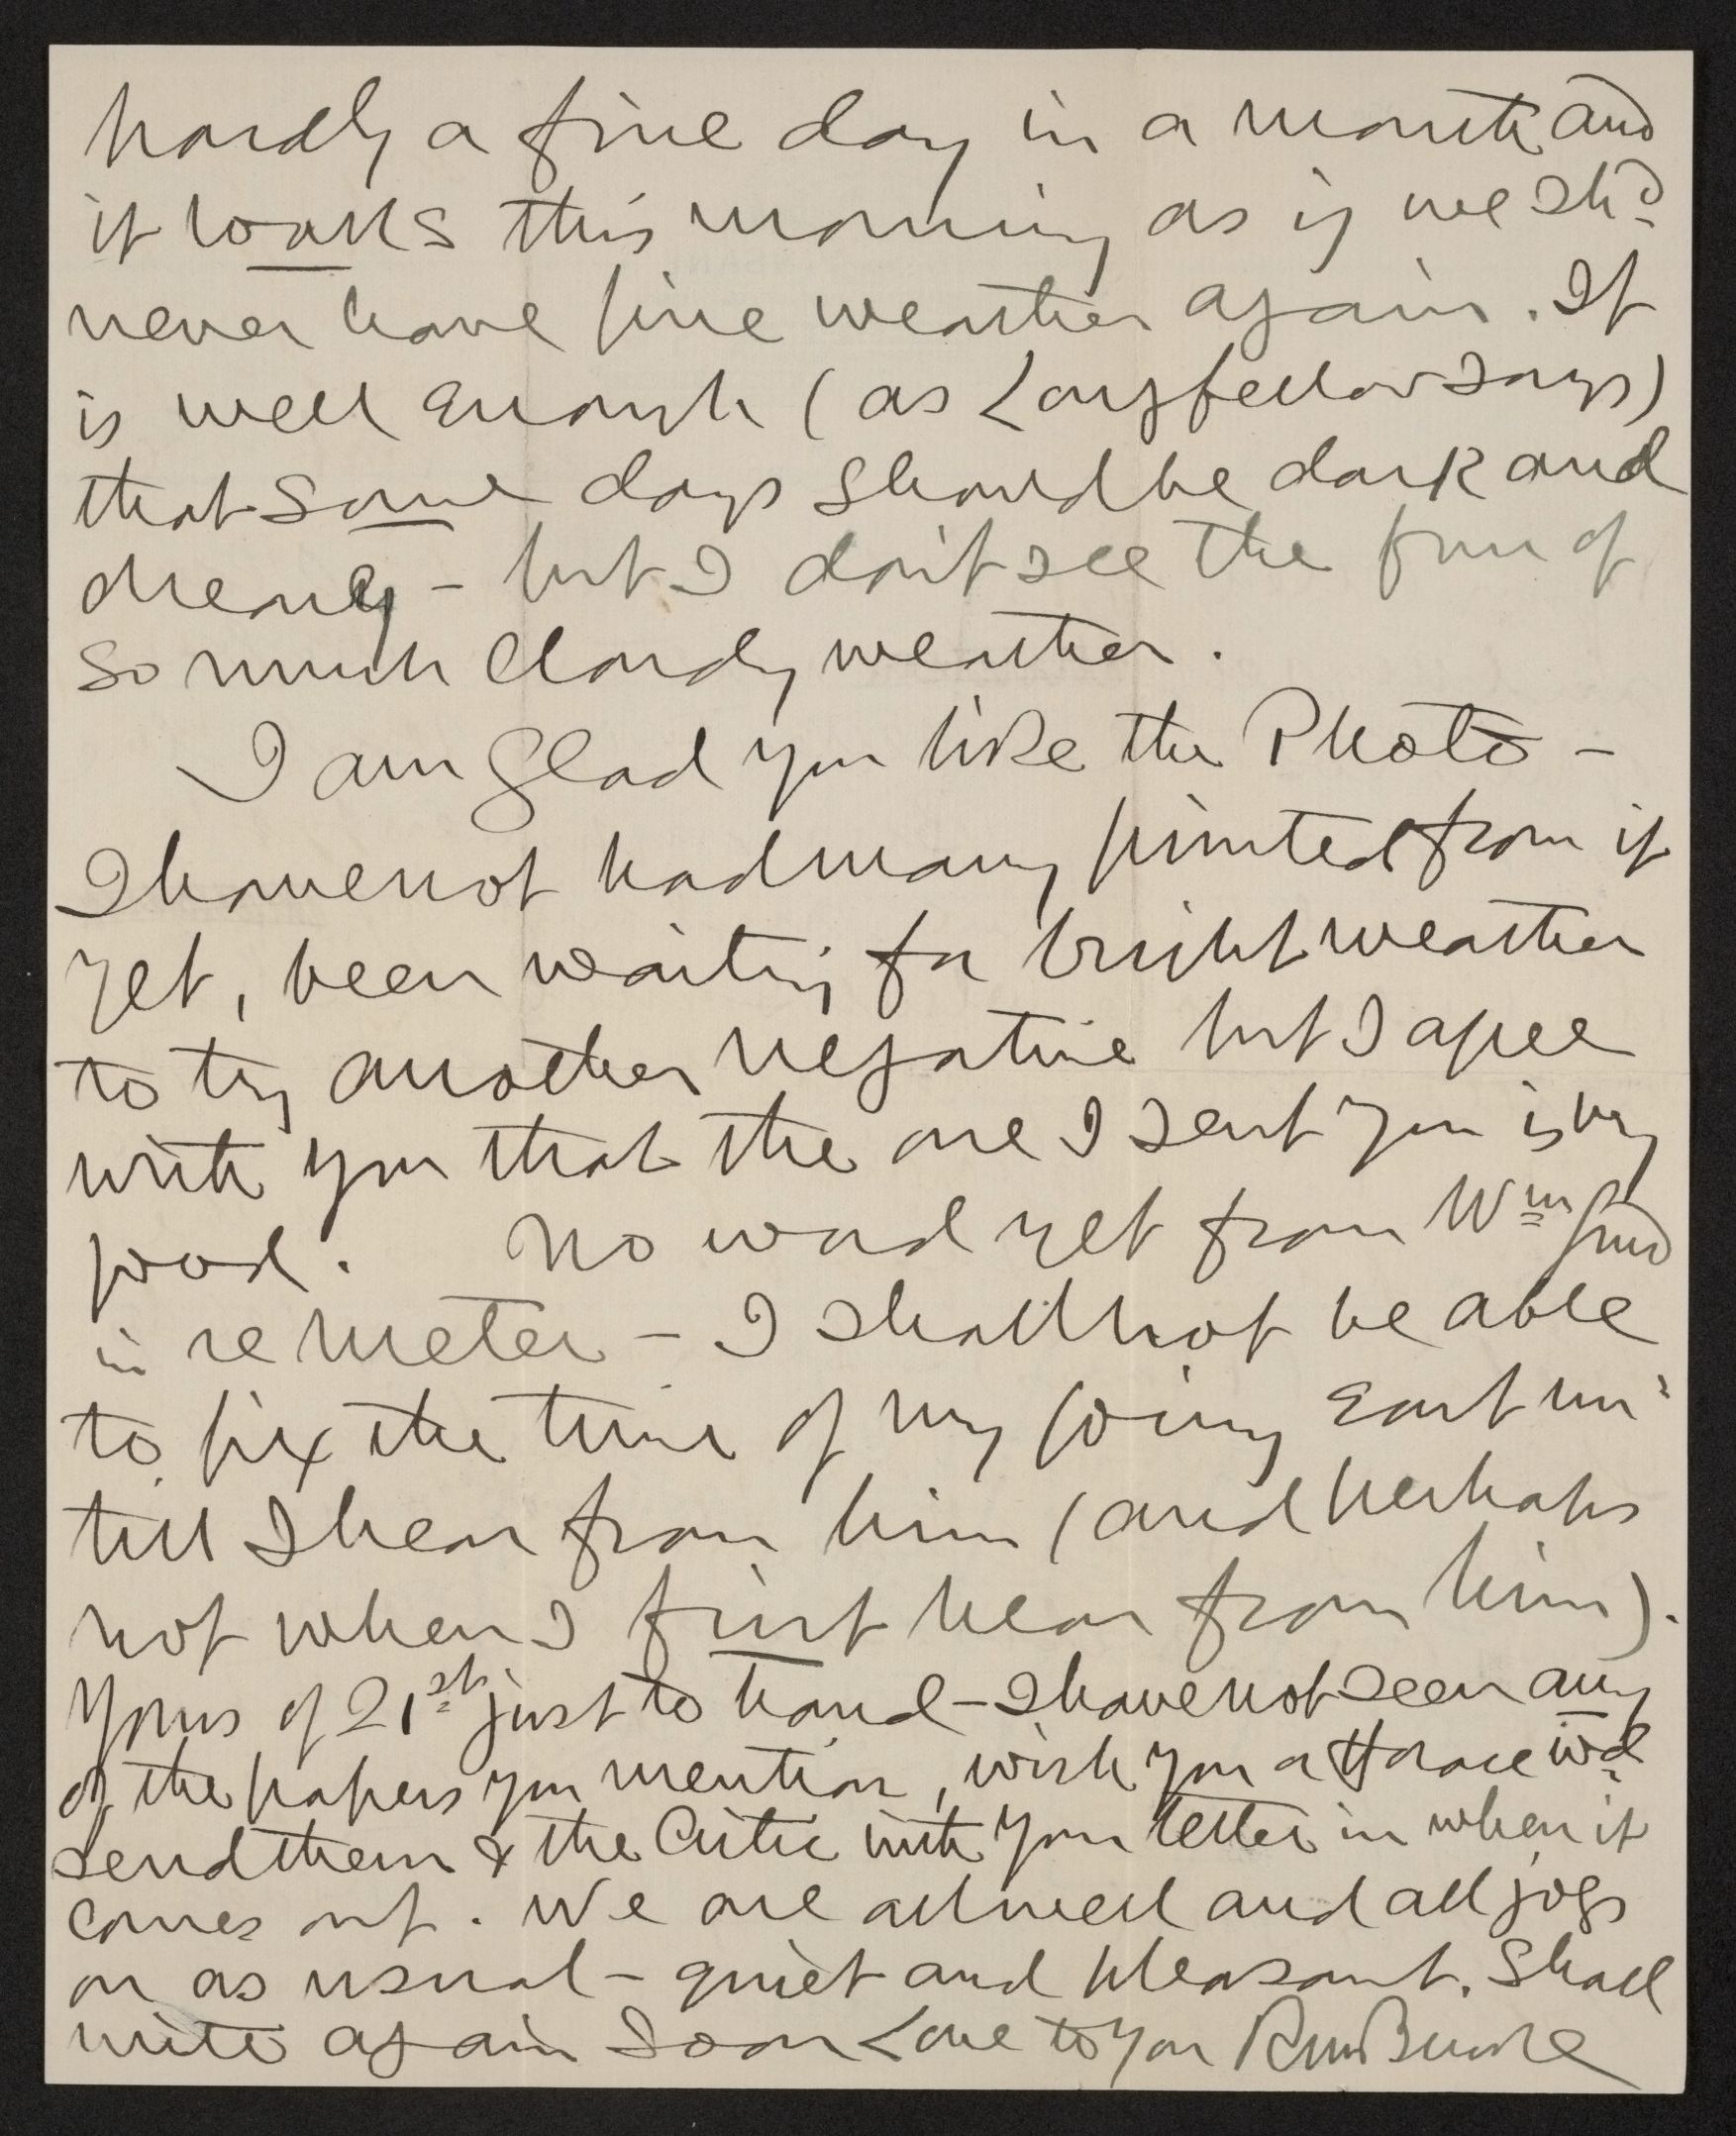 hardly a fine day in a month and
it looks this morning as if we shd
never have fine weather again. It
is well enough (as Longfellow says)
that some days should be dark and
dreary – but I don't see the fun of
so much cloudy weather.
I am glad you like the Photo –
I have not had many printed from it
yet, been waiting for bright weather
to try another negative but I agree
with you that the one I sent you is very
good. No word yet from Wm Gurd
in re meter – I shall not be able
to fix the time of my going East un-
till I hear from him (and perhaps
not when I first hear from him).
Yours of 21st just to hand – I have not seen any
of the papers you mention, wish you or Horace wd
send them & the Critic with your letter in when it
comes out. We are all well and all jogs
on as usual – quiet and pleasant. Shall
write again soon Love to you RM Bucke